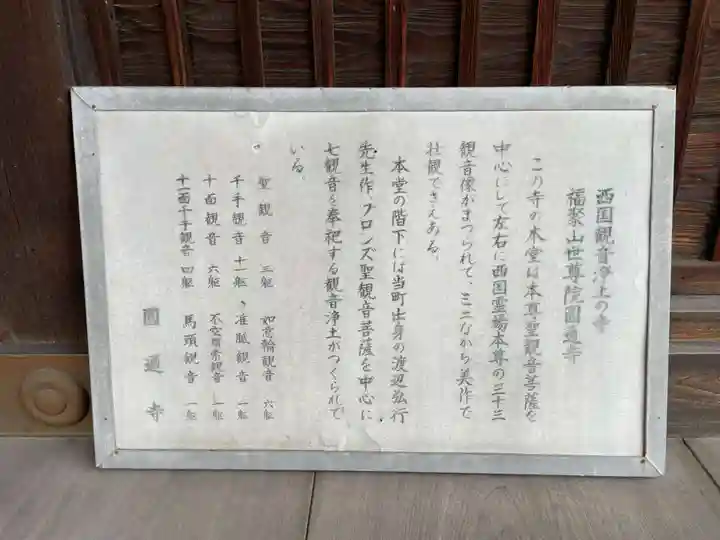 西国観音浄土の寺
福聚山世尊院圓通寺
この寺の本堂は本尊聖観音菩薩を
中心にして左右に西国霊場本尊の三十三
観音像がまつられて、ミニながら美作で
壮観でさえある。
本堂の階下には当町出身の渡辺弘行
先生作、ブロンズ聖観音菩薩を中心に
七観音を奉祀する観音浄土がつくられて
いる。
聖観音 三躯 如意輪観音 六躯
千手観音 十一躯 准胝観音 一躯
十一面観音 六躯 不空羂索観音 一躯
十一面千手観音 四躯 馬頭観音 一躯
圓通寺